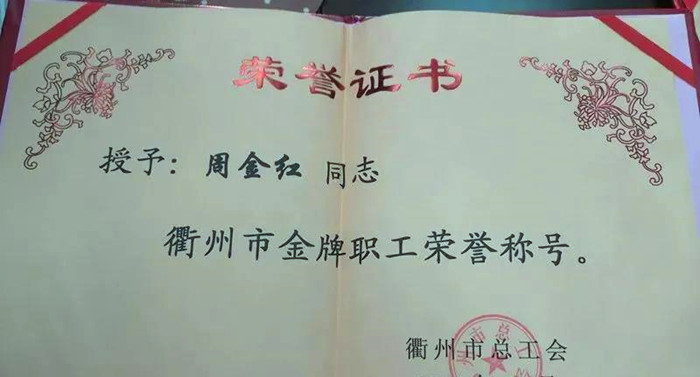 荣誉证书
授予：周金红 同志
衢州市金牌职工荣誉称号。
衢州市总工会